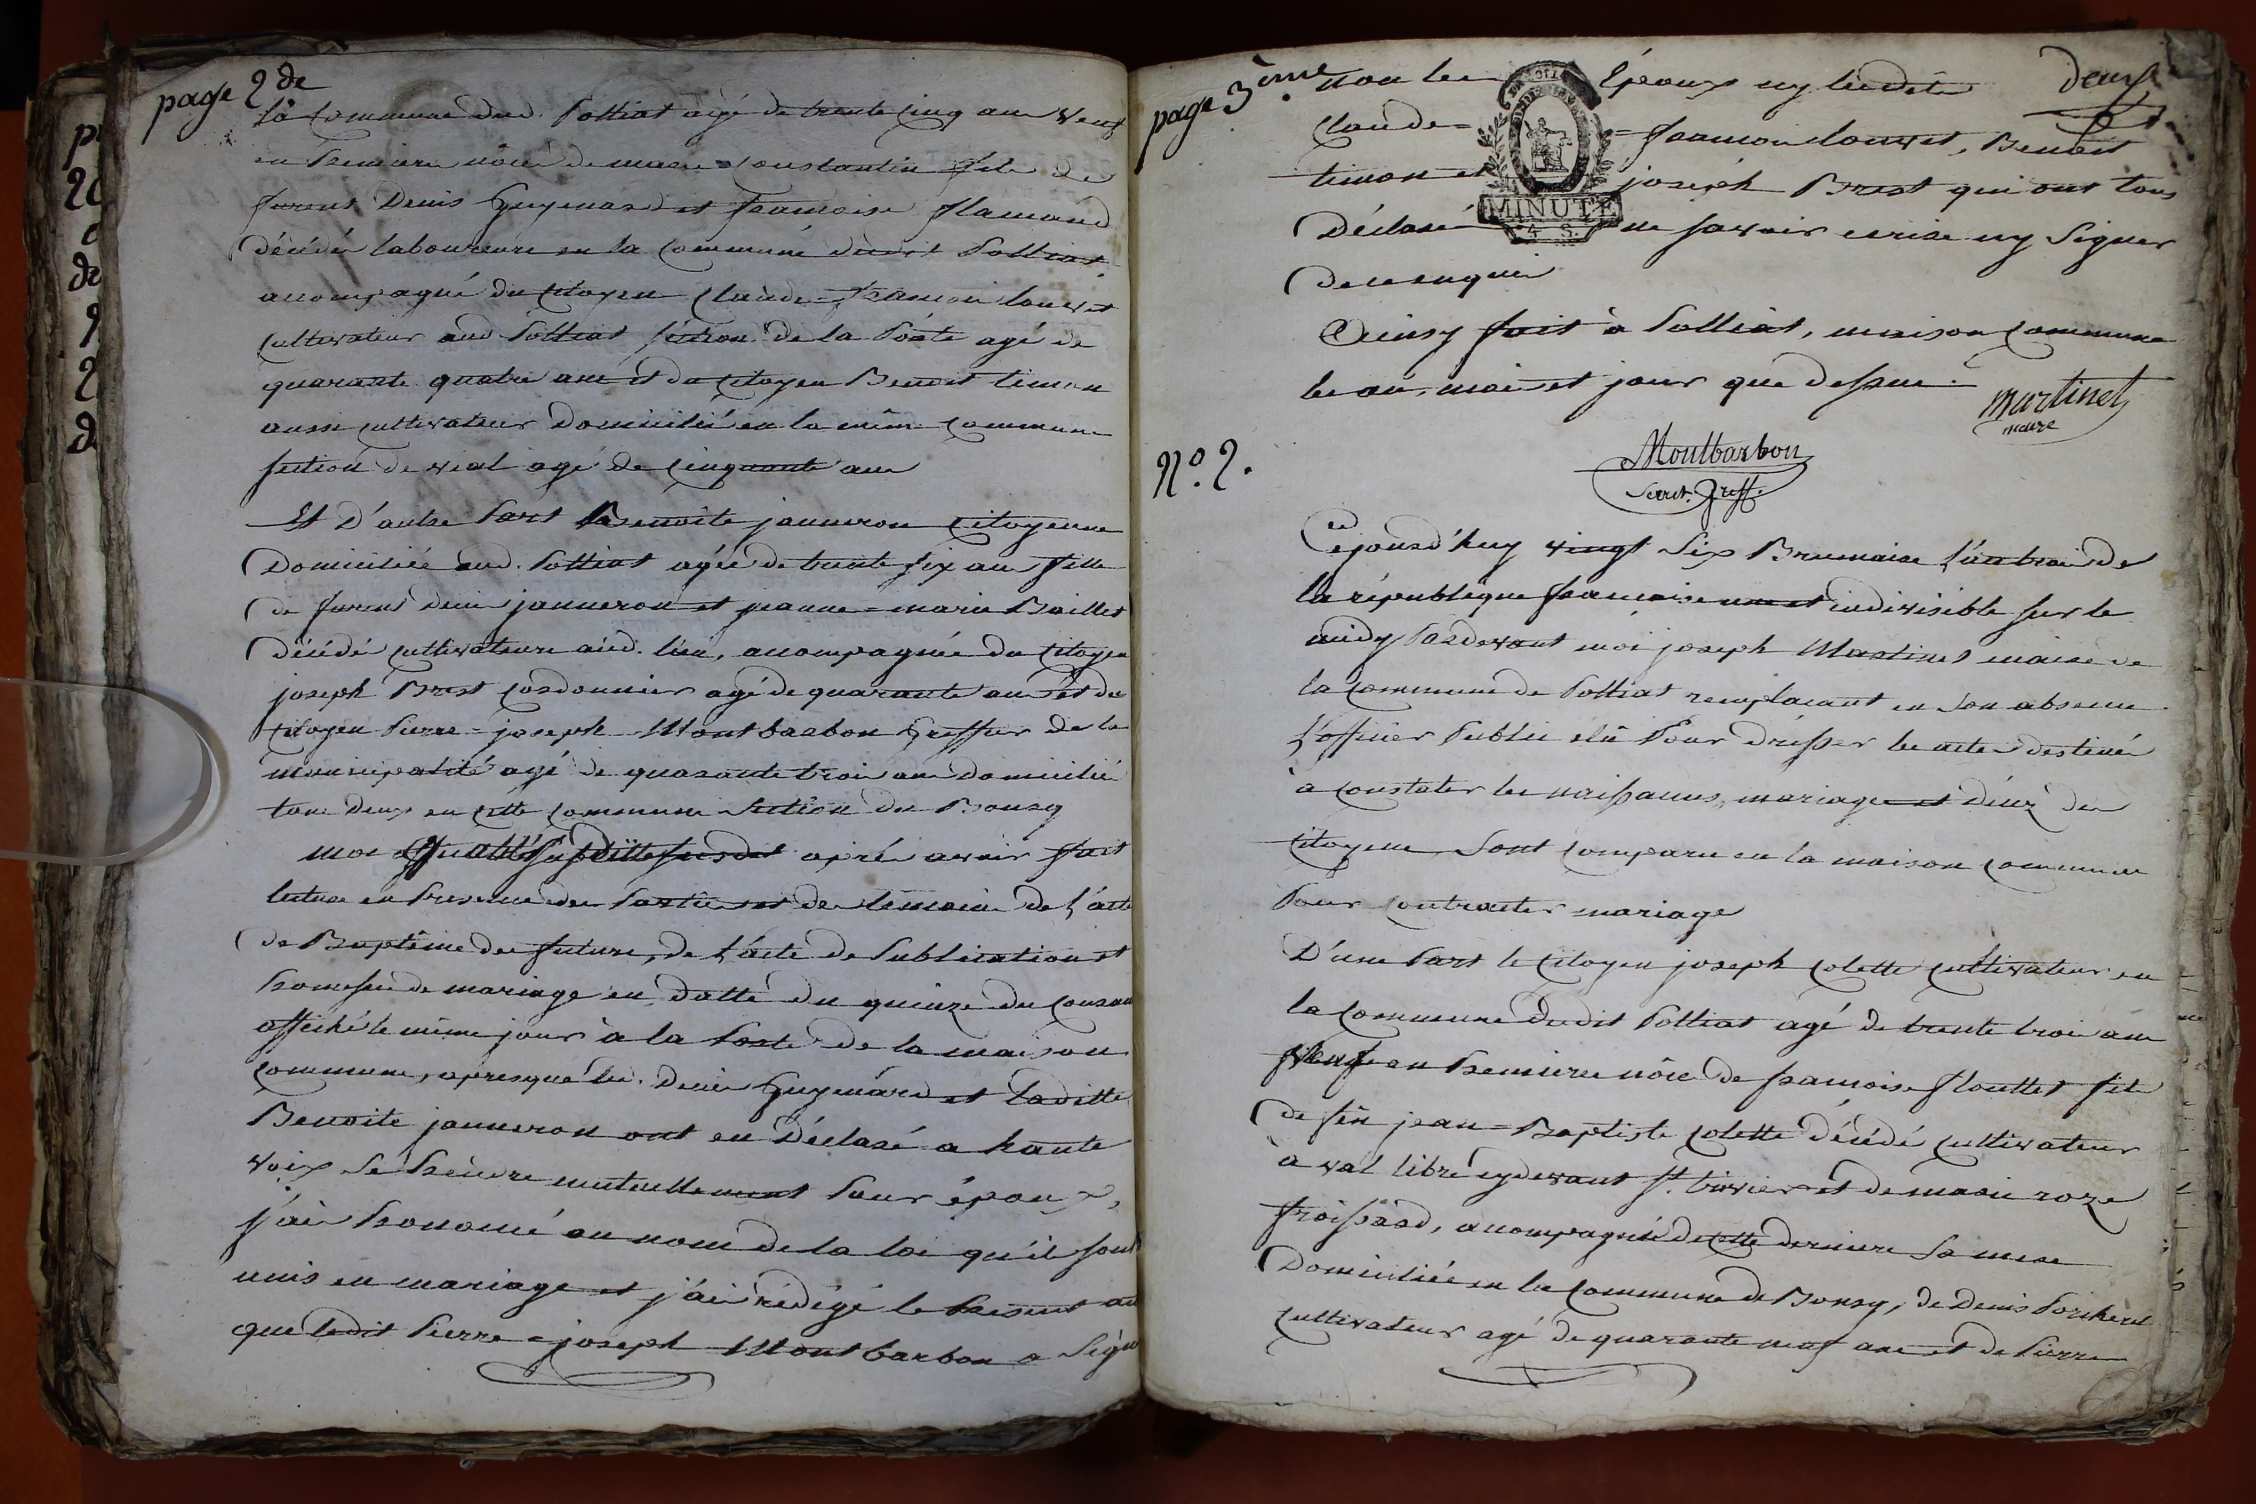 page 2de
la commune dud. Polliat agé de trente cinq ans veuf
en premiere nôce de marie Constantin fils de
furent Denis Guyenard et francoise flamand
décédés laboureurs en la commune dudit Polliat
accompagné du citoyen Claude=francois louvet
cultivateur aud Polliat section de la Poste agé de
quarante quatre ans et du citoyen Benoit timon
aussi cultivateur domicilié en la même commune
section de vial agé de cinquante ans
Et D'autre Part Benoite janneron citoyenne
domiciliée aud. Polliat agée de trente six ans fille
de furent denis janneron et jeanne=marie Baillet
décédés cultivateurs aud. lieu, accompagnée du citoyen
joseph Brest cordonnier agé de quarante ans et du
citoyen Pierre=joseph Montbarbon Greffier de la
municipalité agé de quarante trois ans domiciliés
tous deux en cette commune section du Bourg
moi après avoir fait
lecture en Presence des Parties et des témoins de l'acte
de Baptême des futurs, de l'acte de Publication et
Promesse de mariage en datte du quinze du courant
affiché le même jour à la Porte de la maison
commune, apres que led. denis Guyenard et laditte
Benoite janneron ont eu déclaré a haute
voix se Prendre mutuellement Pour époux,
j'ai Prononcé au nom de la loi qu'ils sont
unis en mariage et j'ai rédigé le Présent acte
que ledit Pierre=joseph Montbarbon a signé
page 3ème
non les Époux ny lesdits deux
Claude=francois louvet, Benoit
timon et joseph Brest qui ont tous
déclaré ne savoir ecrire ny signer
de ce enquis
MINUTE
4 S.
Ainsy fait à Polliat, maison commune
les an, mois et jour que dessus.
Martinet
maire
Montbarbon
Secret. Greff.
N.o 2.
Cejourd'huy vingt six Brumaire l'an trois de
la république francoise une et indivisible sur le
midy Pardevant moi joseph Martinet maire de
la commune de Polliat remplacant en son absence
l'officier Public élû Pour dresser les actes destinés
à constater les naissances, mariages et décès des
citoyens, sont comparu en la maison commune
Pour contracter mariage
D'une Part le citoyen joseph Colette cultivateur en
la commune dudit Polliat agé de trente trois ans
veuf en Premiere nôce de francoise flouttet fils
de feu jean=Baptiste Colette décédé cultivateur
à val libre cydevant st. trivier et de marie roze
froissard, accompagné de cette derniere sa mere
domiciliée en la commune de Bourg, de Denis
cultivateur agé de quarante neuf ans et de Pierre